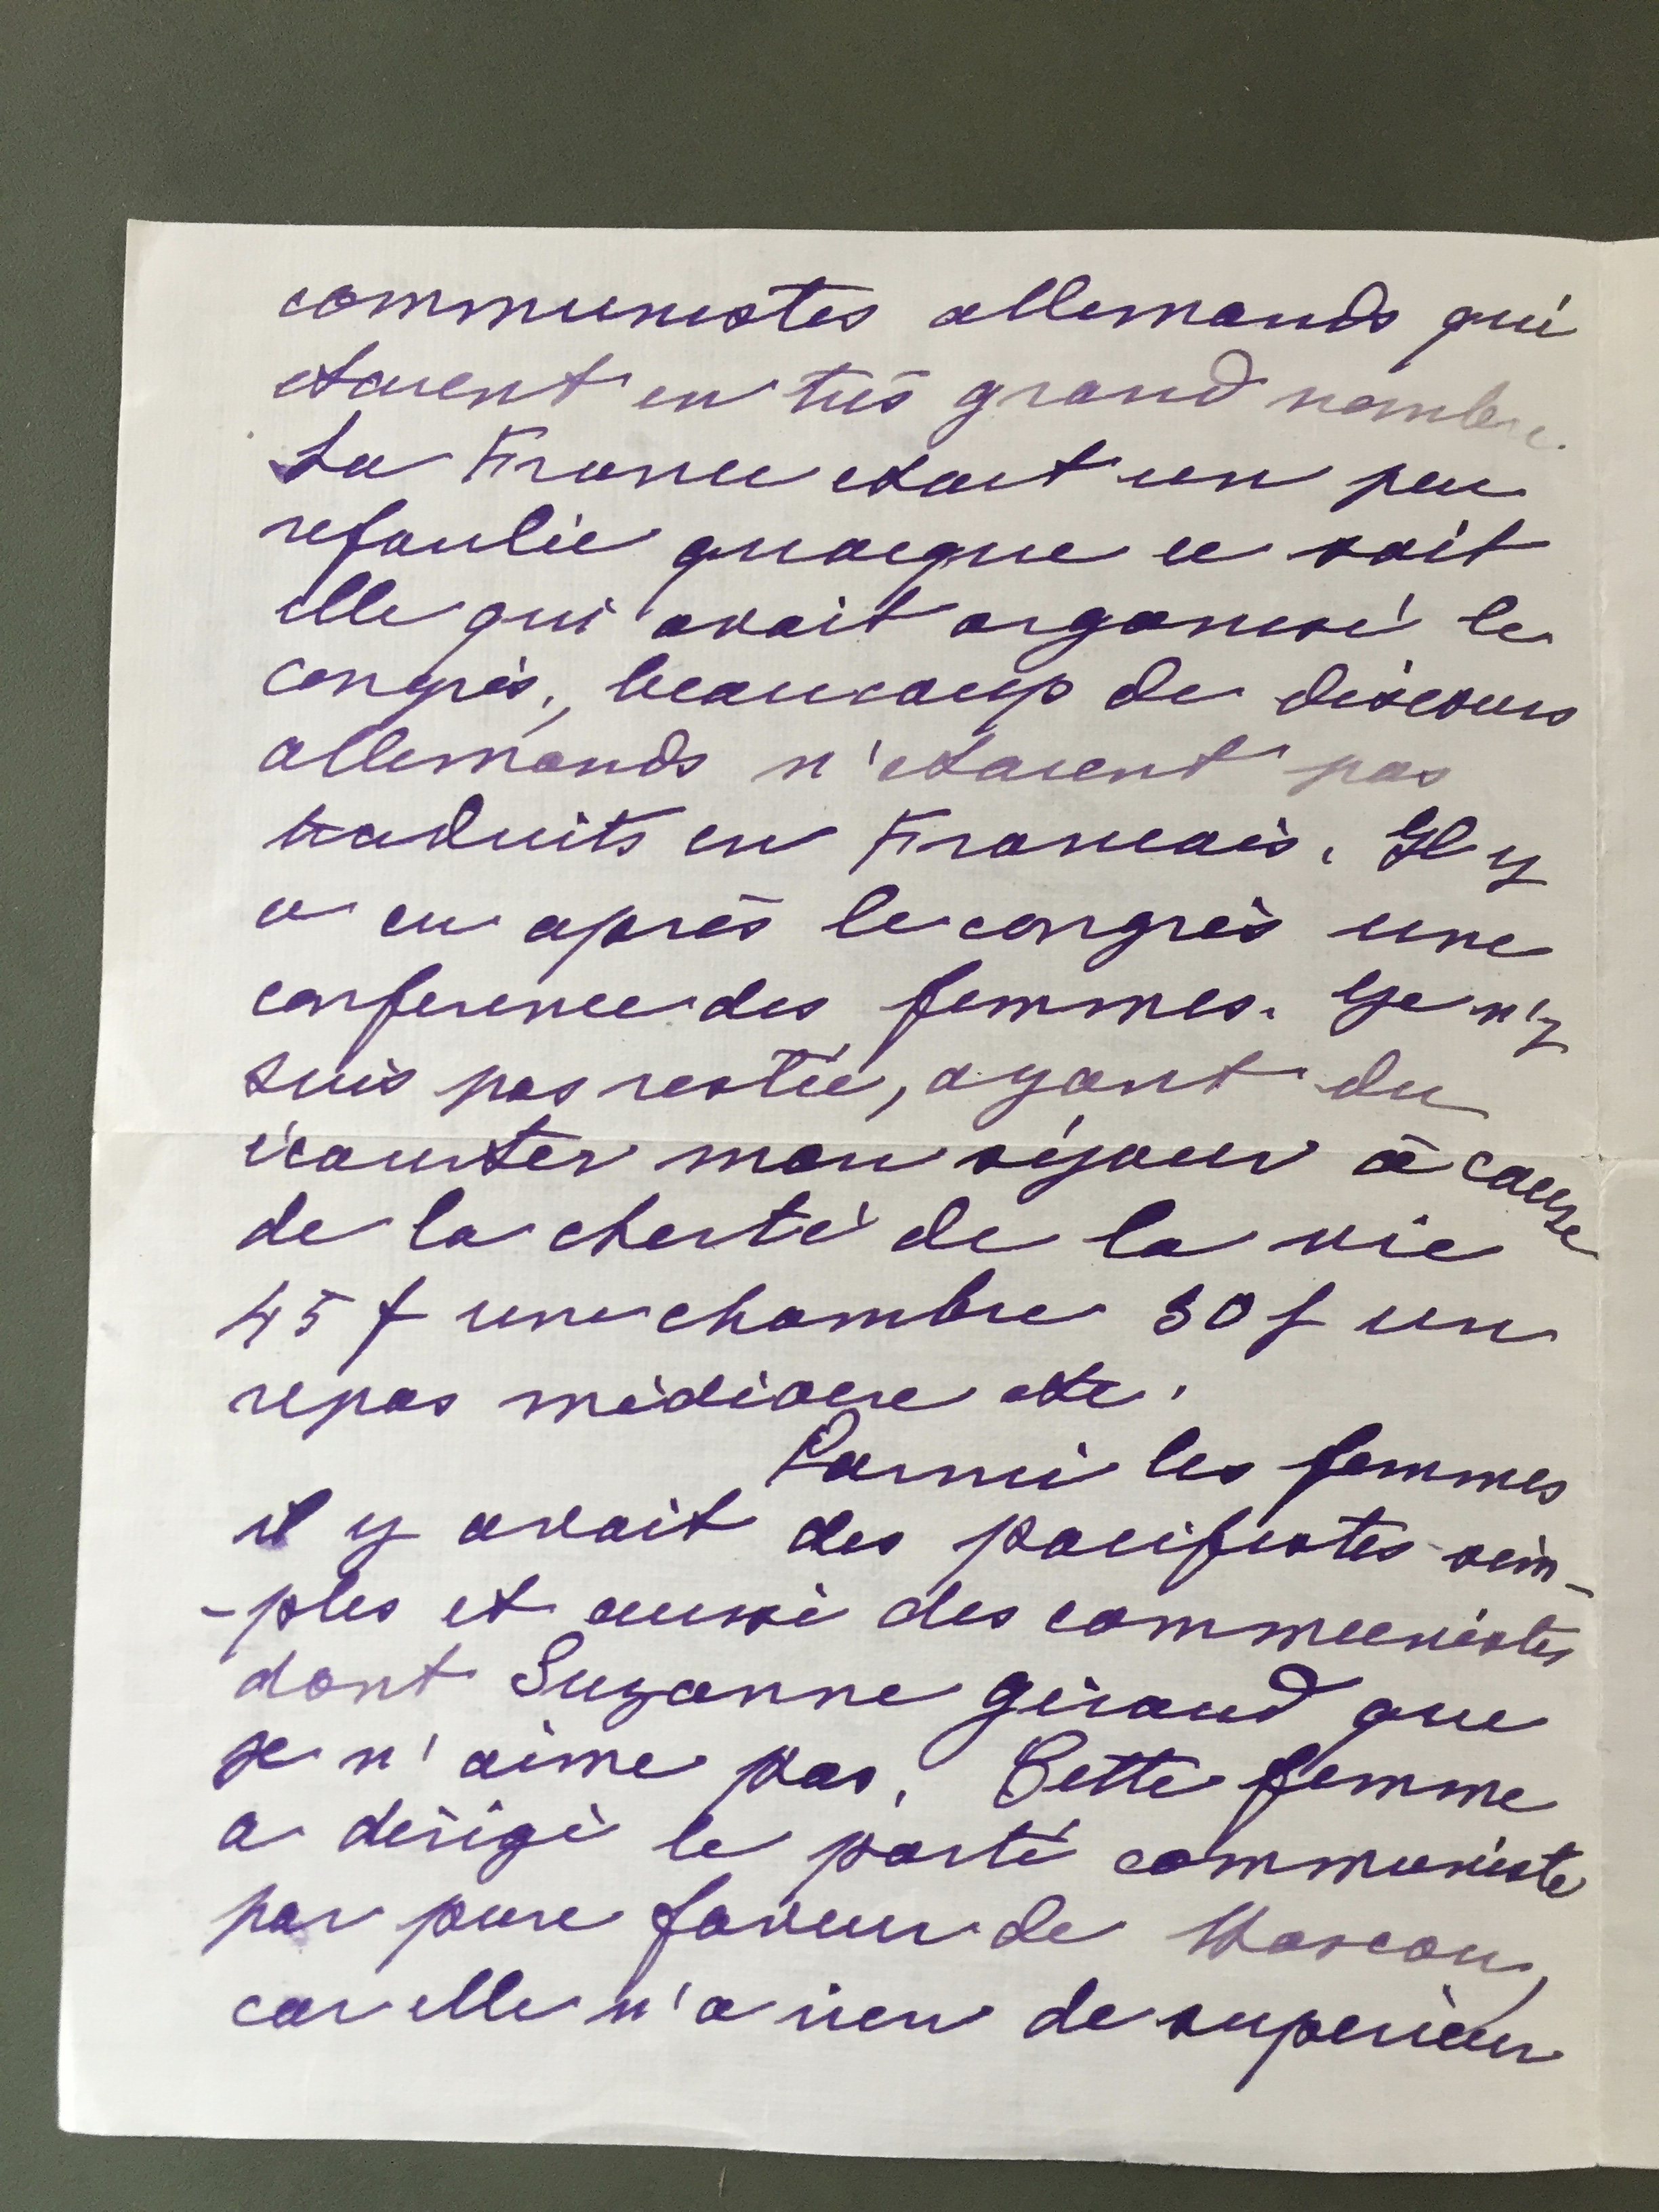 communistes allemands qui
etaient en très grand nombre.
La France etait un peu
refoulée quoique ce soit
elle qui avait organisé le
congrès, beaucoup de discours
allemands n'etaient pas
traduits en Francais. Il y
a eu après le congrès une
conference des femmes. Je n'y
suis pas restée, ayant du
écourter mon séjour à cause
de la cherté de la vie
45 f une chambre 30 f un
repas médiocre etc.
Parmi les femmes
il y avait des pacifistes sim-
-ples et aussi des communistes
dont Suzanne giraud que
je n'aime pas. Cette femme
a dirigé le parti communiste
par pure faveur de Moscou,
car elle n'a rien de superieur